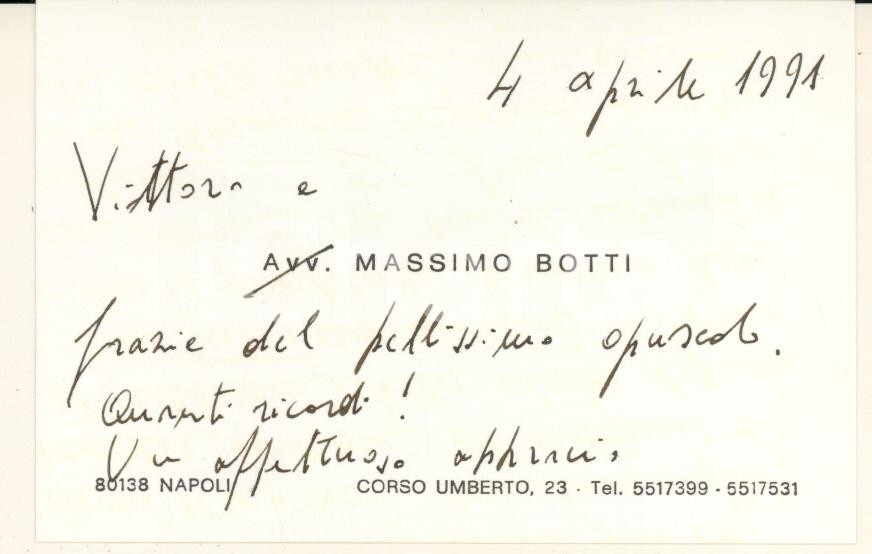 4 aprile 1991
Vittoria e
Avv. MASSIMO BOTTI
grazie del bellissimo opuscolo.
Quanti ricordi!
Un affettuoso abbraccio
80138 NAPOLI CORSO UMBERTO, 23 - Tel. 5517399 - 5517531